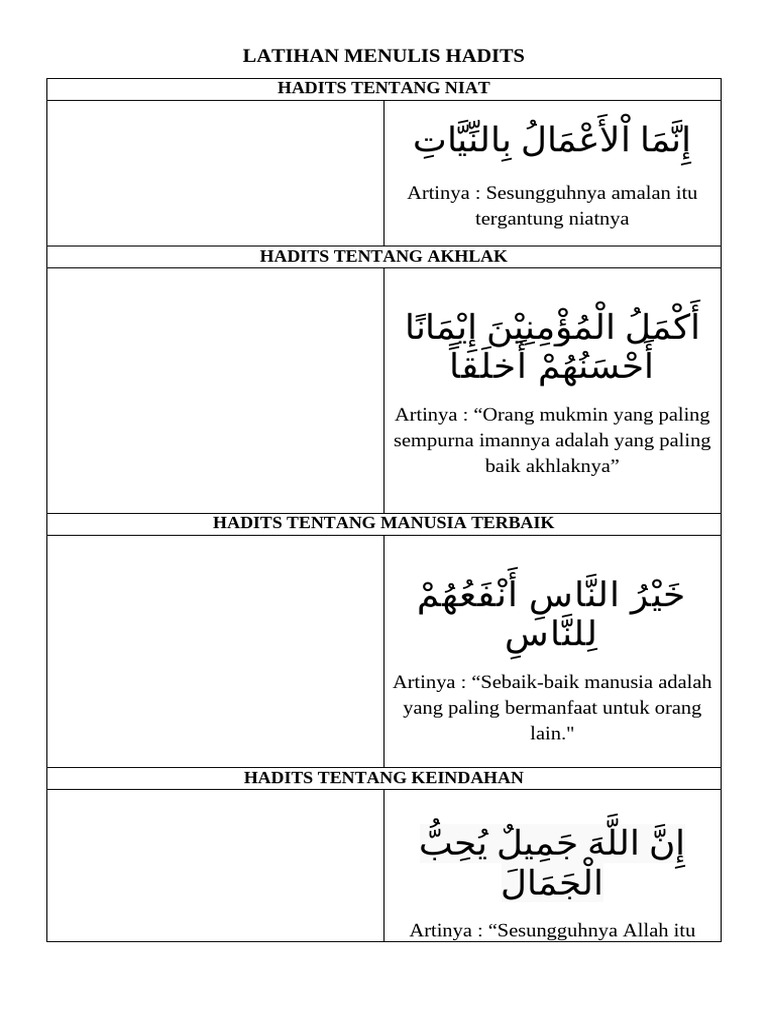 LATIHAN MENULIS HADITS
HADITS TENTANG NIAT
إِنَّمَا اْلأَعْمَالُ بِالنِّيَّاتِ
Artinya : Sesungguhnya amalan itu
tergantung niatnya
HADITS TENTANG AKHLAK
أَكْمَلُ الْمُؤْمِنِيْنَ إِيْمَانًا
أَحْسَنُهُمْ أَخلَقاً
Artinya : “Orang mukmin yang paling
sempurna imannya adalah yang paling
baik akhlaknya”
HADITS TENTANG MANUSIA TERBAIK
خَيْرُ النَّاسِ أَنْفَعُهُمْ
لِلنَّاسِ
Artinya : “Sebaik-baik manusia adalah
yang paling bermanfaat untuk orang
lain."
HADITS TENTANG KEINDAHAN
إِنَّ اللَّهَ جَمِيلٌ يُحِبُّ
الْجَمَالَ
Artinya : “Sesungguhnya Allah itu